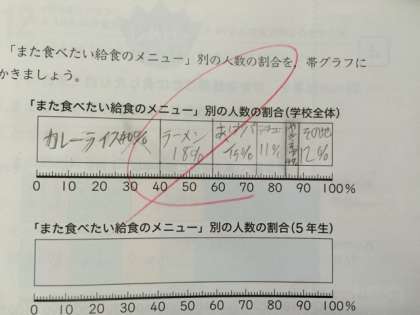 「また食べたい給食のメニュー」別の人数の割合を，帯グラフに
かきましょう。
「また食べたい給食のメニュー」別の人数の割合(学校全体)
カレーライス40% ラーメン 18% あげパン 15% 11% その他 12%
0 10 20 30 40 50 60 70 80 90 100%
「また食べたい給食のメニュー」別の人数の割合(5年生)
0 10 20 30 40 50 60 70 80 90 100%